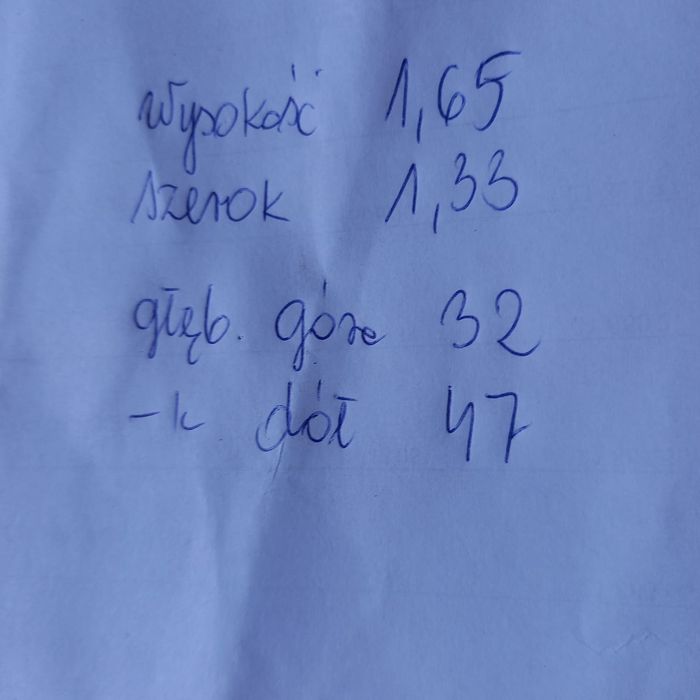 wysokość 1,65
szerok 1,33
głęb. góra 32
-"- dół 47